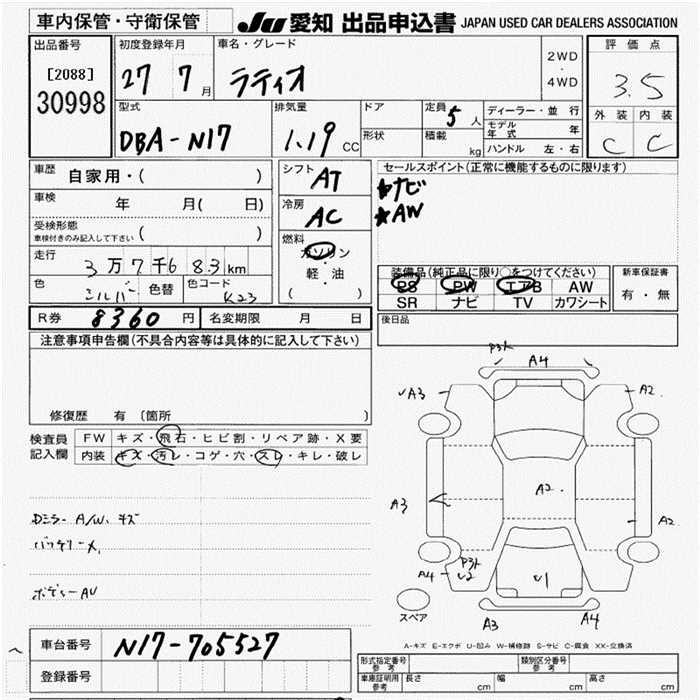 車内保管・守衛保管 JU 愛知 出品申込書 JAPAN USED CAR DEALERS ASSOCIATION
出品番号 初度登録年月 車名・グレード 2WD ・ 4WD 評価点
[2088] 27 7月 ラティオ 3.5
30998 型式 排気量 ドア 定員 5人 ディーラー・並行 外装 内装
DBA-N17 1.19 CC 形状 積載 kg モデル年式 年 C C
ハンドル 左・右
車歴 自家用・( ) シフト AT セールスポイント(正常に機能するものに限ります)
車検 年 月( 日) 冷房 AC ★ナビ
★AW
受検形態 車検付きのみ記入して下さい ( ) 燃料 ガソリン
走行 3万7千683km 軽・油 装備品(純正品に限り○をつけてください) 新車保証書
色 シルバー 色替 色コード K23 ( ) PS PW エアB AW 有・無
SR ナビ TV カワシート
R券 8360円 名変期限 月 日 後日品
注意事項申告欄(不具合内容等は具体的に記入して下さい)
修復歴 有 〔箇所 〕
検査員 FW キズ・飛石・ヒビ割・リペア跡・X要
記入欄 内装 キズ・汚レ・コゲ・穴・スレ・キレ・破レ
P3ト A4
√A3 A2
A3 A2. A2
Dミラー A/W、キズ
バッテリー×、
P3ト
A4 √2 √1
ボデーAU
スペア A3 A4
A-キズ E-エクボ U-凹み W-補修跡 S-サビ C-腐食 XX-交換済
車台番号 N17-705527
登録番号
形式指定番号 参考 類別区分番号 参考
車庫証明用 参考 長さ cm 幅 cm 高さ cm